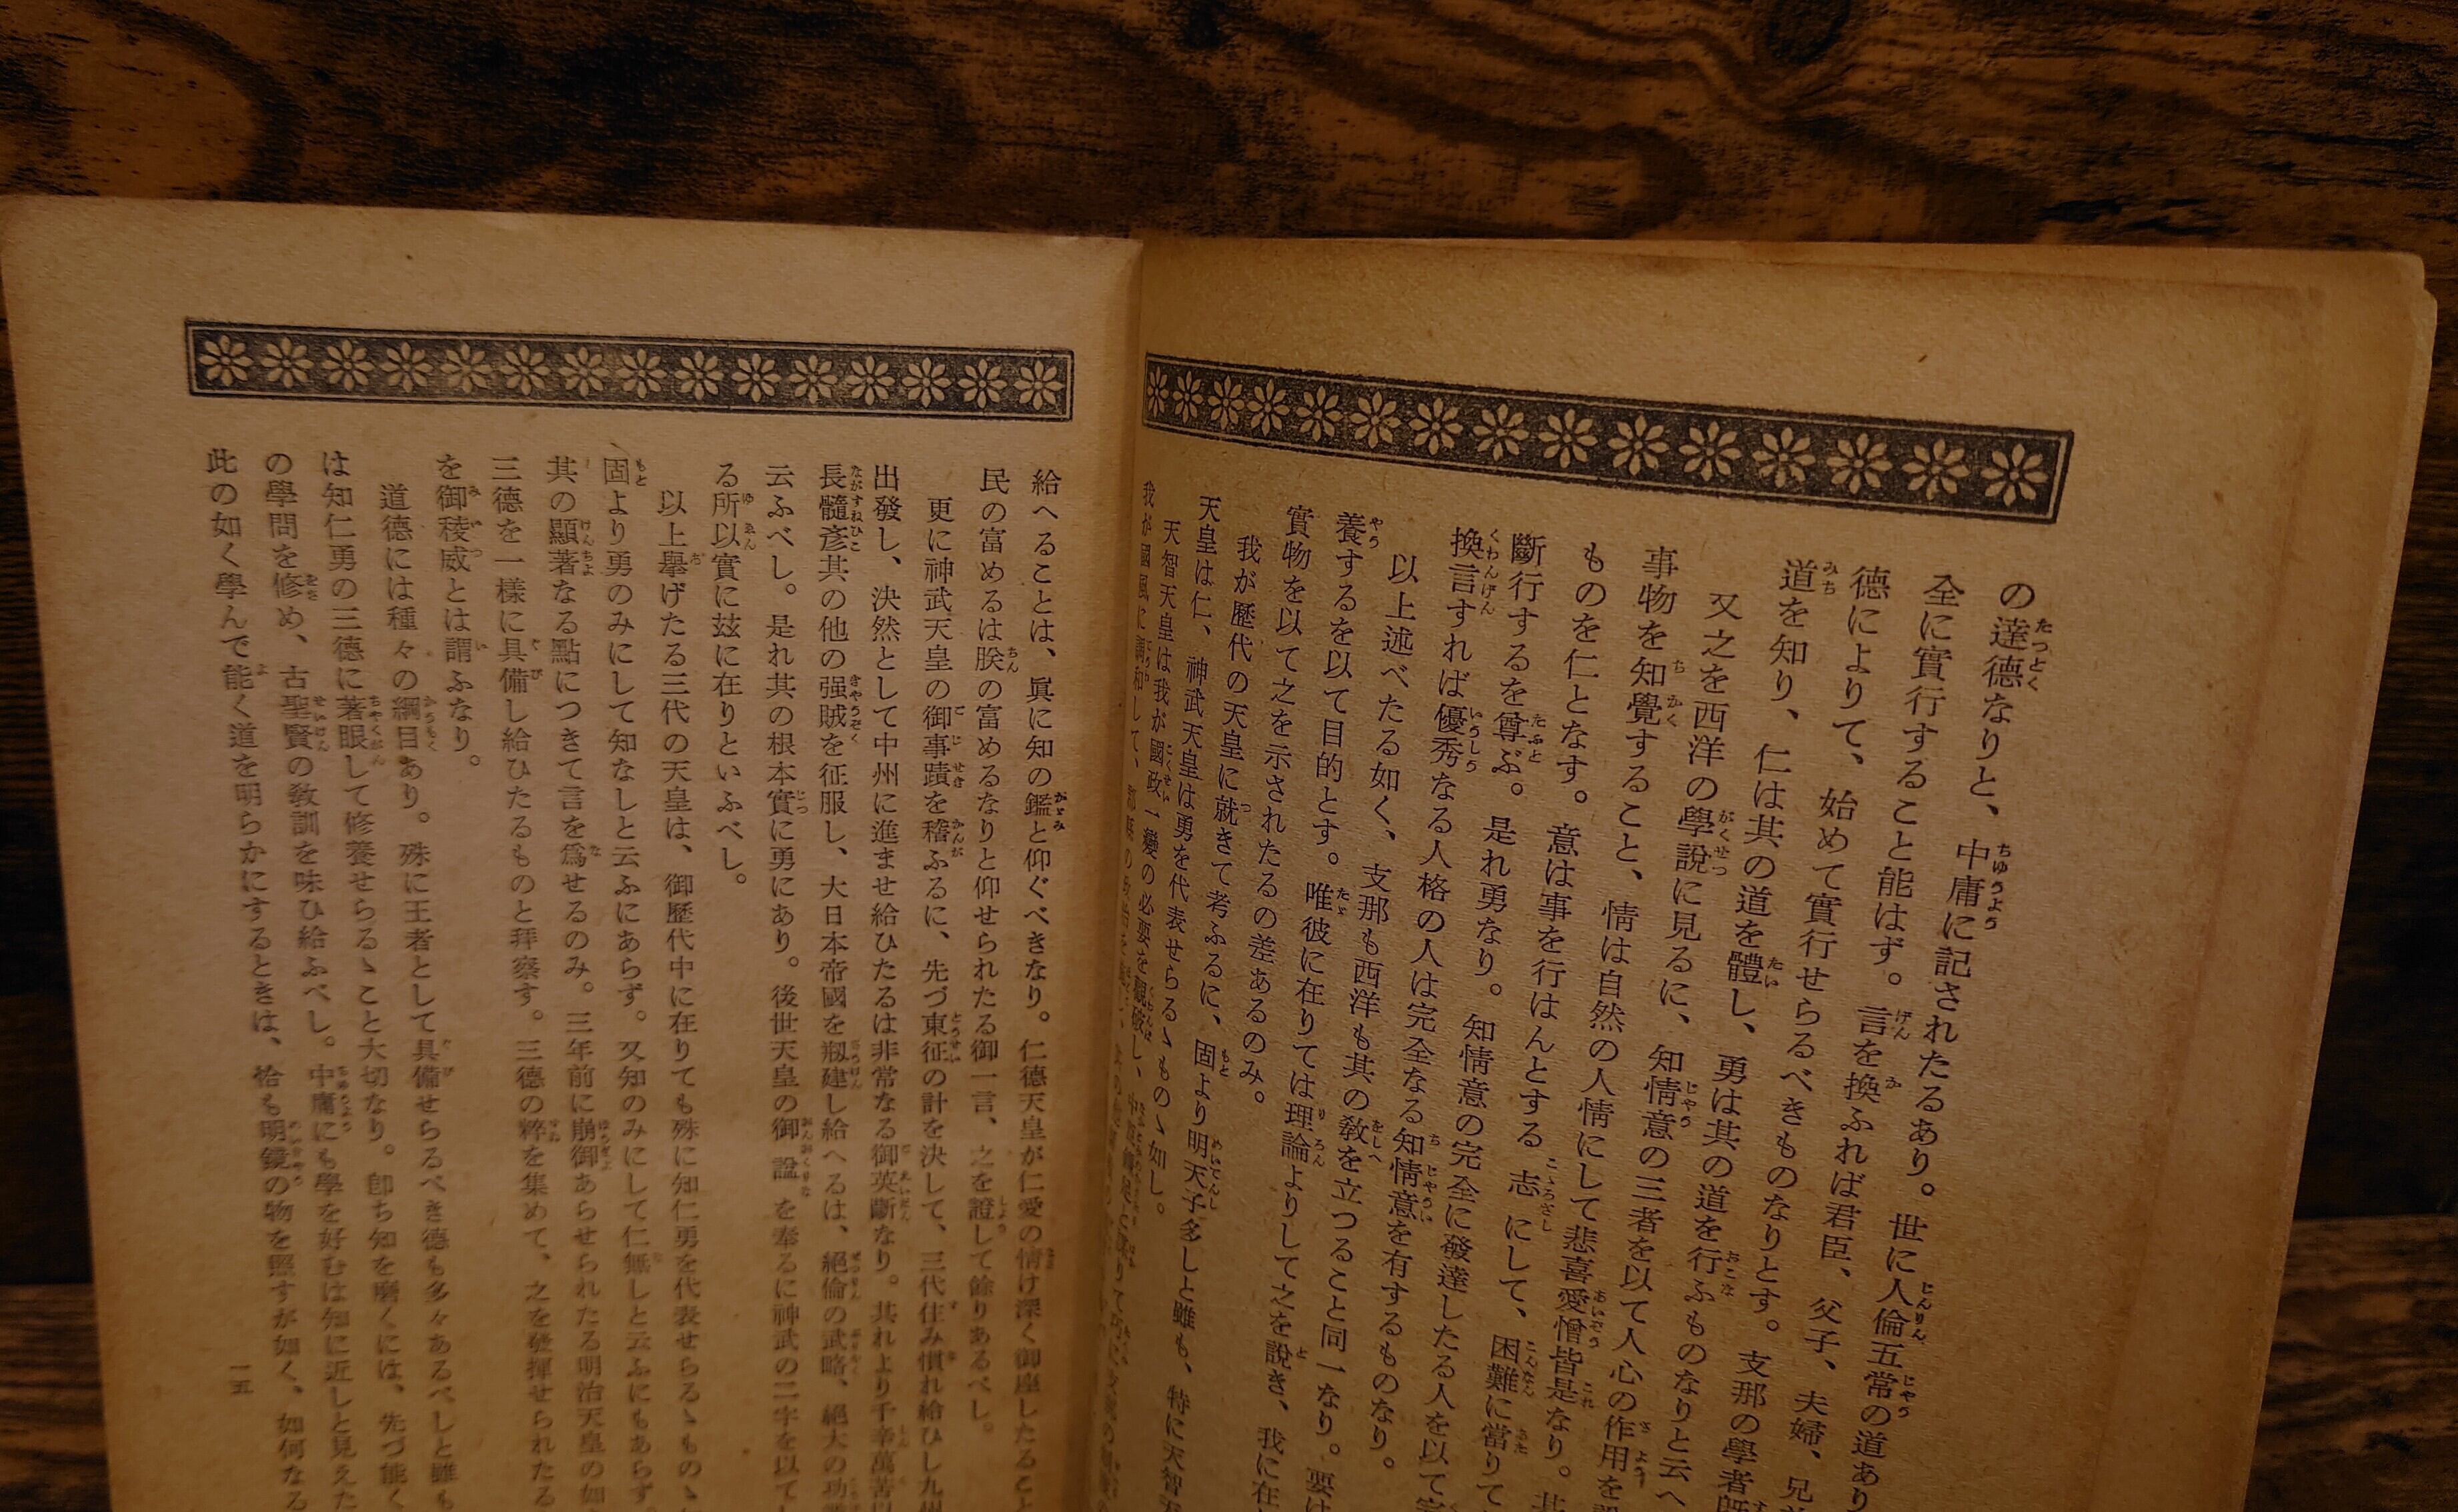 の達德なりと、中庸に記されたるあり。世に人倫五常の道あり
全に實行すること能はず。言を換ふれば君臣、父子、夫婦、兄
德によりて、始めて實行せらるべきものなりとす。支那の學者
道を知り、仁は其の道を體し、勇は其の道を行ふものなりと云へ
又之を西洋の學說に見るに、知情意の三者を以て人心の作用を
事物を知覺すること、情は自然の人情にして悲喜愛憎皆是なり。其
ものを仁となす。意は事を行はんとする志にして、困難に當りて
斷行するを尊ぶ。是れ勇なり。知情意の完全に發達したる人を以て
換言すれば優秀なる人格の人は完全なる知情意を有するものなり。
以上述べたる如く、支那も西洋も其の敎を立つること同一なり。要は
養するを以て目的とす。唯彼に在りては理論よりして之を說き、我に在
實物を以て之を示されたるの差あるのみ。
我が歷代の天皇に就きて考ふるに、固より明天子多しと雖も、特に天智天
天皇は仁、神武天皇は勇を代表せらるゝものゝ如し。
天智天皇は我が國政一變の必要を觀破し、
我が國風に調和して、
給へることは、眞に知の鑑と仰ぐべきなり。仁德天皇が仁愛の情け深く御座したること
民の富めるは朕の富めるなりと仰せられたる御一言、之を證して餘りあるべし。
更に神武天皇の御事蹟を稽ふるに、先づ東征の計を決して、三代住み慣れ給ひし九州
出發し、決然として中州に進ませ給ひたるは非常なる御英斷なり。其れより千辛萬苦以
長髓彥其の他の强賊を征服し、大日本帝國を剏建し給へるは、絕倫の武略、絕大の功
云ふべし。是れ其の根本實に勇にあり。後世天皇の御諡を奉るに神武の二字を以てし
る所以實に玆に在りといふべし。
以上擧げたる三代の天皇は、御歷代中に在りても殊に知仁勇を代表せらるゝものゝ
固より勇のみにして知なしと云ふにあらず。又知のみにして仁無しと云ふにもあらず。
其の顯著なる點につきて言を爲せるのみ。三年前に崩御あらせられたる明治天皇の如
三德を一樣に具備し給ひたるものと拜察す。三德の粹を集めて、之を發揮せられたる
を御稜威とは謂ふなり。
道德には種々の綱目あり。殊に王者として具備せらるべき德も多々あるべしと雖も
は知仁勇の三德に著眼して修養せらるゝこと大切なり。卽ち知を磨くには、先づ能く
の學問を修め、古聖賢の敎訓を味ひ給ふべし。中庸にも學を好むは知に近しと見えた
此の如く學んで能く道を明らかにするときは、恰も明鏡の物を照すが如く、如何なる
一五